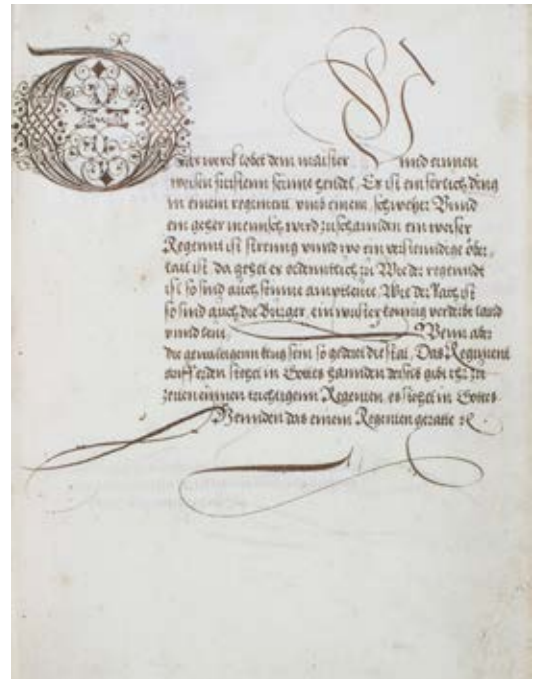 Das werck lobet denn maister vnnd einnen
weisen furstenn seinne hendel. Es ist ein ferlich ding
in einem regiment vmb einem schweher Vnnd
ein geher mennsch wird zuschannden ein weiser
Regennt ist streng vnnd wo ein verstenndige öber,
kait ist da gehet es ordenntlich zu Wie der regenndt
ist so sind auch seinne amptleute, Wie der Rath ist
so sind auch die Burger, ein wuster konnig verderbt land
vnnd leut, Wenn aber
die gewaltigenn klug sein so gedeiet die stat. Das Regiment
auff erden stehet in Gottes hannden derselb gibt ihr zu
zeiten einnen tuchtigenn Regenten es stehet in Gottes
Hennden das einem Regenten geratte ꝛc